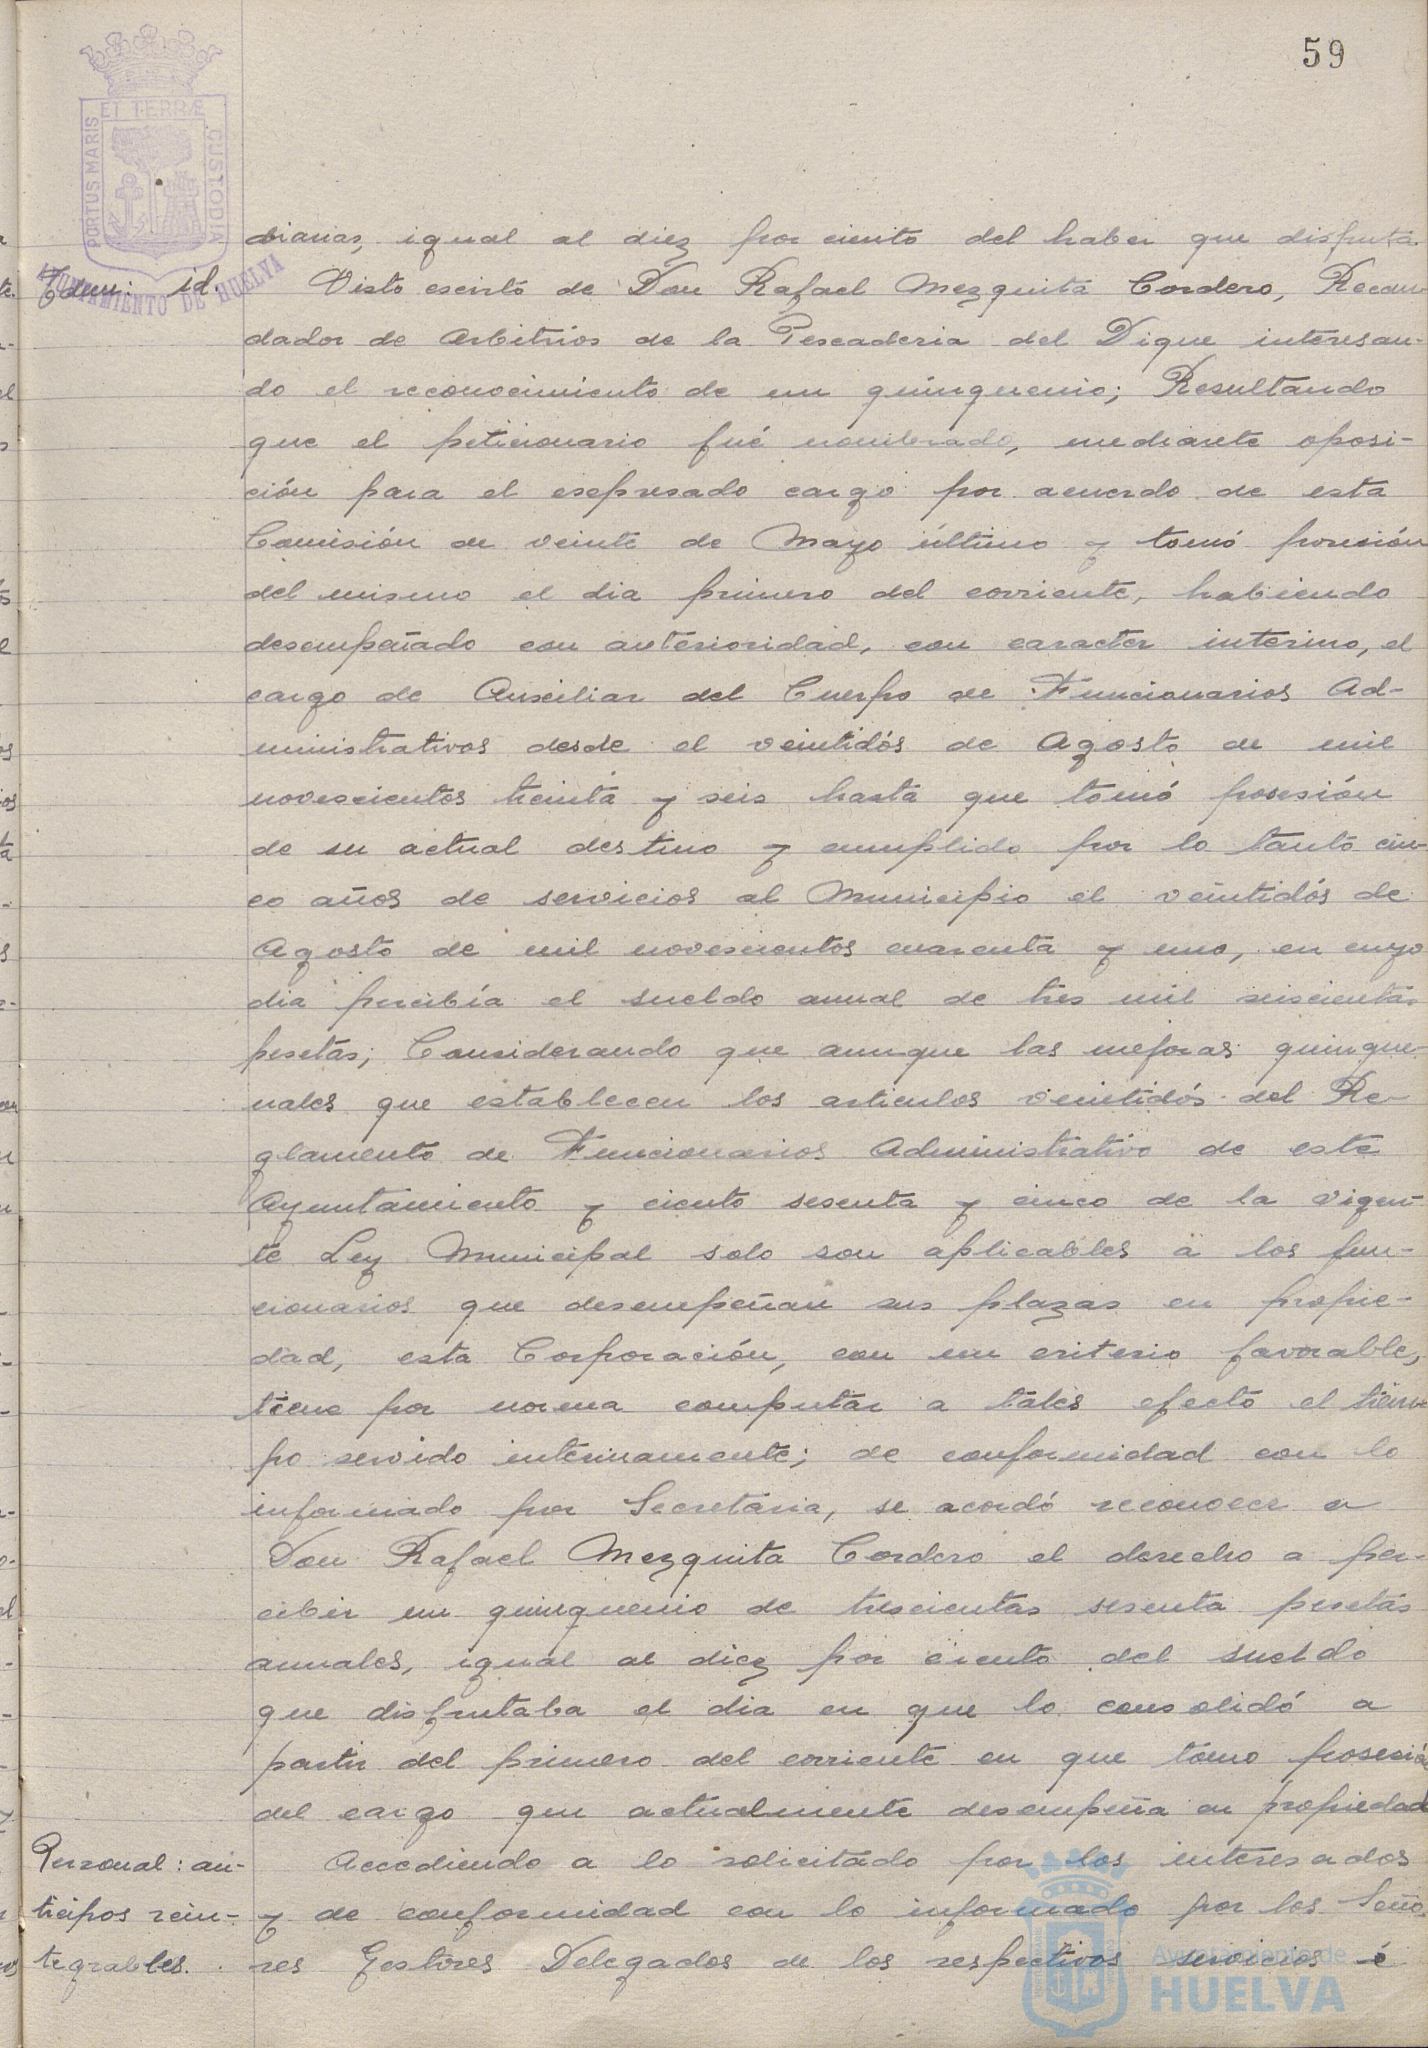 59
ET TERRÆ
PORTUS MARIS
CUSTODIA
AYUNTAMIENTO DE HUELVA
diarias, igual al diez por ciento del haber que disfruta
Idem: id.
Visto escrito de Don Rafael Mezquita Cordero, Recau-
dador de Arbitrios de la Pescaderia del Dique interesan-
do el reconocimiento de un quinquenio; Resultando
que el peticionario fué nombrado, mediante oposi-
ción para el esepresado cargo por acuerdo de esta
Comisión de veinte de Mayo último y tomó posesión
del mismo el dia primero del corriente, habiendo
desempeñado con anterioridad, con caracter interino, el
cargo de Auxiliar del Cuerpo de Funcionarios Ad-
ministrativos desde el veintidós de Agosto de mil
novescientos treinta y seis hasta que tomó posesión
de su actual destino y cumplido por lo tanto cin-
co años de servicios al Municipio el veintidós de
Agosto de mil novescientos cuarenta y uno, en cuyo
dia percibía el sueldo anual de tres mil seiscientas
pesetas; Considerando que aunque las mejoras quinque-
nales que establecen los articulos veintidós del Re-
glamento de Funcionarios Administrativo de este
Ayuntamiento y ciento sesenta y cinco de la vigen-
te Ley Municipal solo son aplicables á los fun-
cionarios que desempeñan sus plazas en propie-
dad, esta Corporación, con un criterio favorable,
tiene por norma computar a tales efecto el tiem-
po servido interinamente; de conformidad con lo
informado por Secretaria, se acordó reconocer a
Don Rafael Mezquita Cordero el derecho a per-
cibir un quinquenio de trescientas sesenta pesetas
anuales, igual al diez por ciento del sueldo
que disfrutaba el dia en que lo consolidó a
partir del primero del corriente en que tomo posesión
del cargo que actualmente desempeña en propiedad
Personal: an-
ticipos rein-
tegrables.
Accediendo a lo solicitado por los interesados
y de conformidad con lo informado por los Seño-
res Gestores Delegados de los respectivos servicios é
Ayuntamiento de
HUELVA